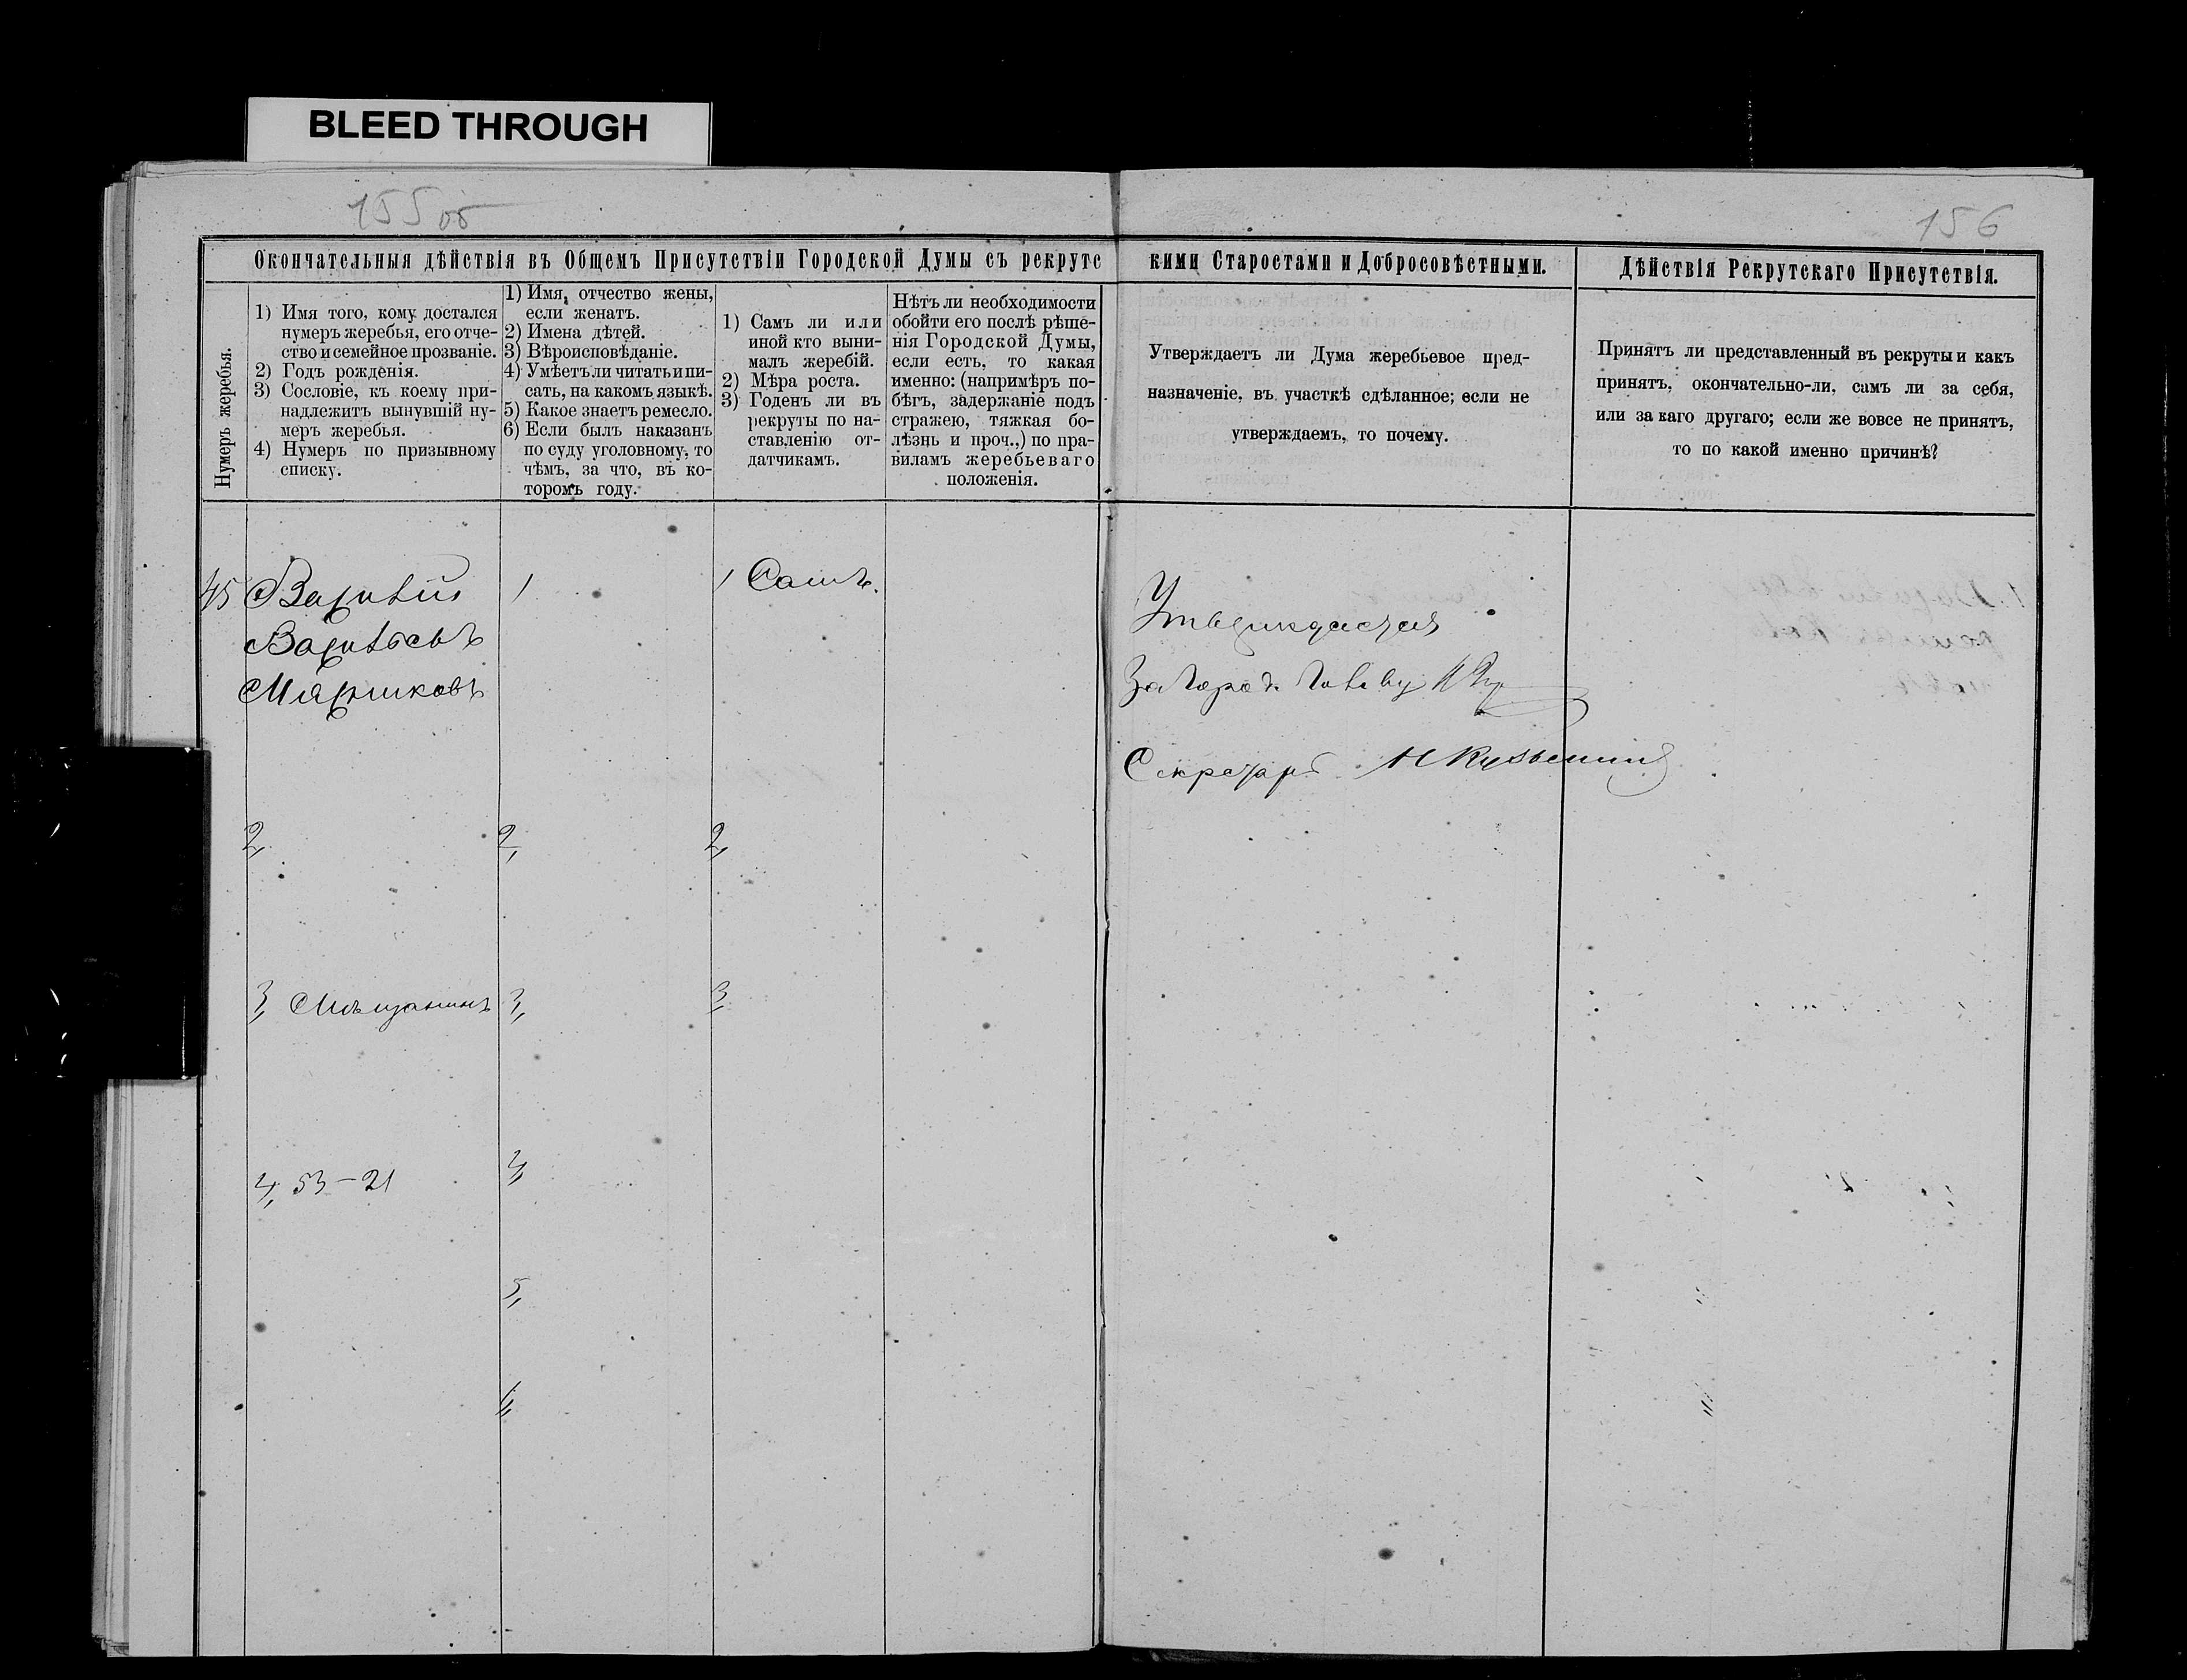 BLEED THROUGH
155 об
156
Окончательныя дѣйствія въ Общемъ Присутствіи Городской Думы съ рекрутс
кими Старостами и Добросовѣстными.
Дѣйствія Рекрутскаго Присутствія.
Нумеръ жеребья.
1) Имя того, кому достался
нумеръ жеребья, его отче-
ство и семейное прозваніе.
2) Годъ рожденія.
3) Сословіе, къ коему при-
надлежитъ вынувшій ну-
меръ жеребья.
4) Нумеръ по призывному
списку.
1) Имя, отчество жены,
если женатъ.
2) Имена дѣтей.
3) Вѣроисповѣданіе.
4) Умѣетъ ли читать и пи-
сать, на какомъ языкѣ.
5) Какое знаетъ ремесло.
6) Если былъ наказанъ
по суду уголовному, то
чѣмъ, за что, въ ко-
торомъ году.
1) Самъ ли или
иной кто выни-
малъ жеребій.
2) Мѣра роста.
3) Годенъ ли въ
рекруты по на-
ставленію от-
датчикамъ.
Нѣтъ ли необходимости
обойти его послѣ рѣше-
нія Городской Думы,
если есть, то какая
именно: (напримѣръ по-
бѣгъ, задержаніе подъ
стражею, тяжкая бо-
лѣзнь и проч.,) по пра-
виламъ жеребьеваго
положенія.
Утверждаетъ ли Дума жеребьевое пред-
назначеніе, въ участкѣ сдѣланное; если не
утверждаемъ, то почему.
Принятъ ли представленный въ рекруты и какъ
принятъ, окончательно-ли, самъ ли за себя,
или за каго другаго; если же вовсе не принятъ,
то по какой именно причинѣ?
45
1
1 Самъ.
Утверждается
За Город. Голову
Секретарь Н Кузьминъ
2,
2,
2,
3, Мѣщанинъ
3,
3,
4, 53-21
4,
5,
6,